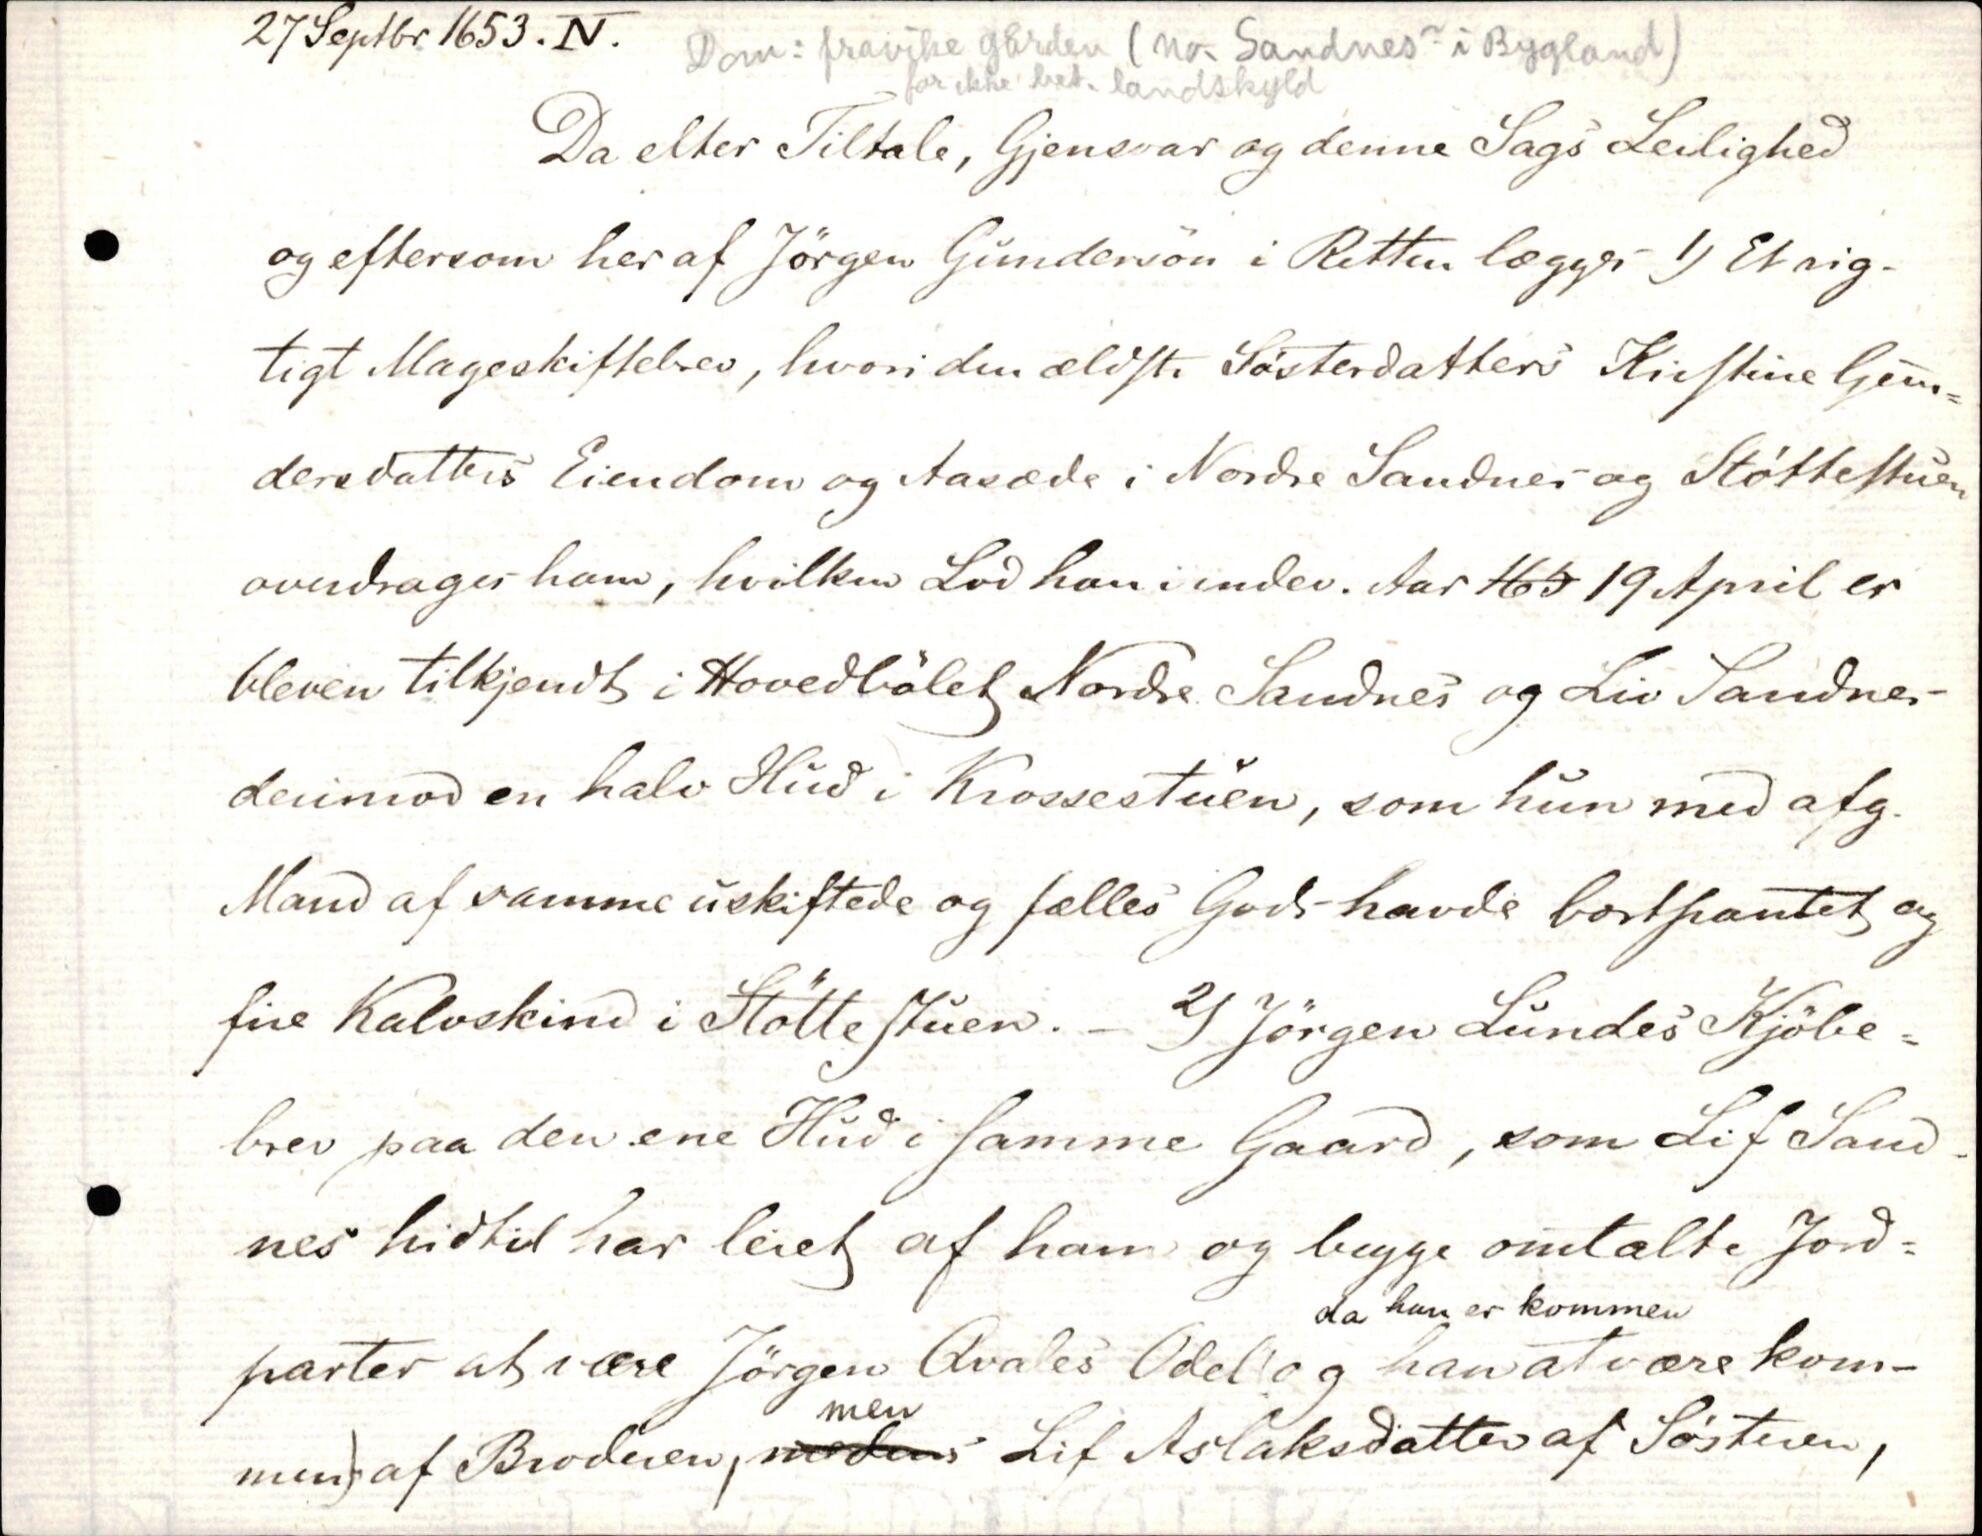 27 Septbr 1653. N.
Dom: fravike gården (No. Sandnes i Bygland)
for ikke bet. landskyld
Da efter Tiltale, Gjensvar og denne Sags Leilighed
og eftersom her af Jörgen Gundersön i Retten lægges 1) Et rig-
tigt Mageskiftebrev, hvori den ældste Sösterdatters Kirstine Gun=
dersdatters Eiendom og Aasæde i Nordre Sandnes og Stöttestuen
overdrages ham, hvilken Lod han i indev. Aar 165 19 April er
bleven tilkjendt i Hovedbölet Nordre Sandnes og Liv Sandnes
derimod en halv Hud i Krossestuen, som hun med afg.
Mand af samme uskiftede og fælles Gods havde bortpantet og
fire Kalvskind i Stöttestuen. – 2) Jörgen Lundes Kjöbe=
brev paa den ene Hud i samme Gaard, som Lif Sand-
nes hidtil har leiet af ham og begge omtalte Jord=
da han er kommen
parter at være Jörgen Qvales Odel og han at være kom-
men) af Broderen, men medens Lif Aslaksdatter af Sösteren,